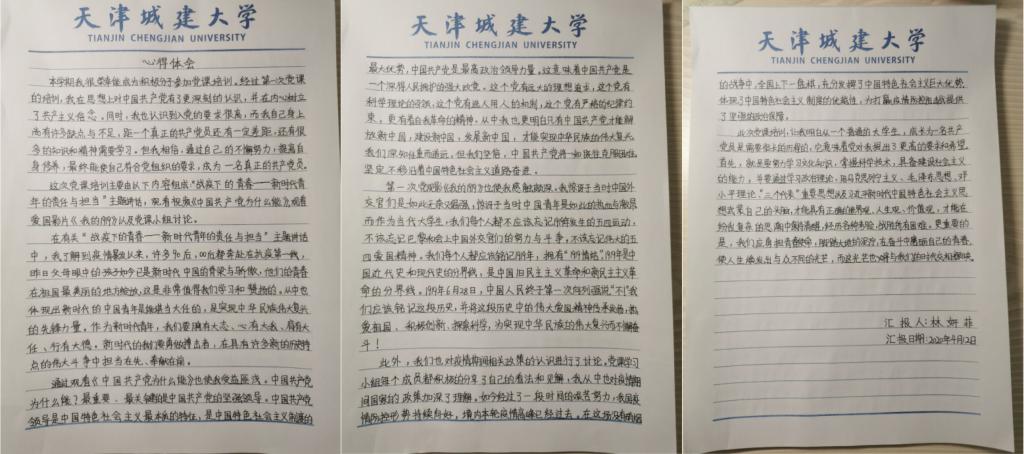 天津城建大学
TIANJIN CHENGJIAN UNIVERSITY
心得体会
本学期我很荣幸能成为积极分子参加党课培训。经过第一次党课
的培训,我在思想上对中国共产党有了更深刻的认识,并在内心树立
了共产主义信念。同时,我也认识到入党的要求很高,而我自己身上
尚有许多缺点与不足,距一个真正的共产党员还有一定差距,还有很
多的知识和精神需要学习。但我相信,通过自己的不懈努力,提高自
身修养,最终能使自己符合党组织的要求,成为一名真正的共产党员。
这次党课培训主要由以下内容组成:“战疫下的青春——新时代青年
的责任与担当”主题讲话,观看视频《中国共产党为什么能》,观看
爱国影片《我的1919》以及党课小组讨论。
在有关“战疫下的青春——新时代青年的责任与担当”主题讲话
中,我了解到疫情爆发以来,许多90后,00后都奔赴在抗疫第一线,
昨日父母眼中的孩子如今已是新时代中国的脊梁与骄傲,他们的青春
在祖国最美丽的地方绽放,这是非常值得我们学习和赞扬的。从中也
体现出新时代的中国青年是能堪当大任的,是实现中华民族伟大复兴
的先锋力量。作为新时代青年,我们要胸有大志、心有大我、肩有大
任、行有大德。新时代的我们要勇做搏击者,在具有许多新的历史特
点的伟大斗争中担当在先、奉献在前。
通过观看《中国共产党为什么能》也使我受益匪浅。中国共产党
为什么能?最重要、最关键的是中国共产党的坚强领导。中国共产党
领导是中国特色社会主义最本质的特征,是中国特色社会主义制度的
天津城建大学
TIANJIN CHENGJIAN UNIVERSITY
最大优势,中国共产党是最高政治领导力量。这意味着中国共产党是
一个深得人民拥护的强大政党。这个党有远大的理想追求,这个党有
科学理论的引领,这个党有选人用人的机制,这个党有严格的纪律约
束,更有着自我革命的精神。从中我也更明白只有中国共产党才能解
放新中国,建设新中国,发展新中国,才能实现中华民族的伟大复兴。
我们深知任重而道远,但我们坚信,中国共产党将一如既往克服困难
坚定不移沿着中国特色社会主义道路奋进。
第一次党观影《我的1919》也使我感触颇深。我惊讶于当时中国外
交官们是如此无奈又倔强,惊讶于当时中国青年是如此的热血与激昂
而作为当代大学生,我们每个人都不应该忘记1919年发生的五四运动,
不该忘记巴黎和会上中国外交官们的努力与斗争,不该忘记伟大的五
四爱国精神,我们每个人都应该铭记1919年,拥有“1919情结”。1919年是中
国近代史和现代史的分界线,是中国旧民主主义革命和新民主主义革
命的分界线。1919年6月28日,中国人民终于第一次向列强说“不!”我
们应该铭记这段历史,并将这段历史中的伟大爱国精神传承发扬,热
爱祖国、积极创新、探索科学,为实现中华民族的伟大复兴而不懈奋
斗!
此外,我们也对疫情期间相关政策的认识进行了讨论。党课学习
小组每个成员都积极的分享了自己的看法和见解,我从中也对疫情期
间国家的政策加深了理解。如今经过了一段时间的艰苦努力,我国疫
情防控形势持续向好,境内本轮疫情高峰已经过去。在这场没有硝烟
天津城建大学
TIANJIN CHENGJIAN UNIVERSITY
的战争中,全国上下一盘棋,充分发挥了中国特色社会主义巨大优势,
体现了中国特色社会主义制度的优越性,为打赢疫情防控阻击战提供
了坚强的政治保障。
此次党课培训,让我明白从一个普通的大学生,成为一名共产
党员是需要很长的历程的,它意味着党对我提出了更高的要求和希望。
首先,就是要努力学习文化知识,掌握科学技术,具备建设社会主义
的能力,并要通过学习政治理论,用马克思列宁主义、毛泽东思想、邓
小平理论、“三个代表”重要思想以及习近平新时代中国特色社会主义思
想武装自己的头脑,才能具有正确的世界观、人生观、价值观,才能在
纷乱复杂的思潮中保持清醒,经历各种考验,战胜所有困难。更重要的
是,我们应肩担青春使命,脚踏大地的深厚,在奋斗中磨砺自己的青春,
使人生焕发出与众不同的光芒,而这光芒也必将与我们的时代交相辉映。
汇报人:林妍菲
汇报日期:2020年4月2日